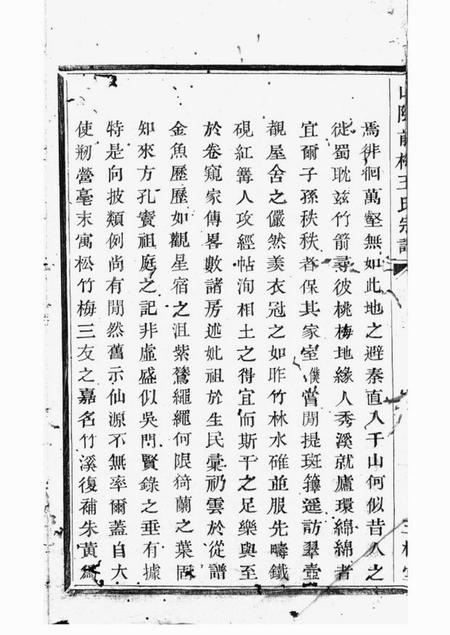 山陰前梅王氏宗譜
焉徘徊萬壑無如此地之避秦直入千山何似昔人之
徙蜀耽兹竹箭尋彼桃梅地緣人秀溪就廬環綿綿者
宜爾子孫秩秩者保其家室僕嘗閒提斑籜遥訪翠壺
覩屋舍之儼然美衣冠之如昨竹林水碓並服先疇鐵
硯紅篝人攻經帖洵相土之得宜而斯干之足樂與至
於卷窺家傳畧數諸房述妣祖於生民彙礽雲於從譜
金魚歷歷如觀星宿之沮紫鷟繩繩何限猗蘭之葉固
知來方孔賓祖庭之記非虛盛似吳門賢錄之垂有據
特是向披類例尚有閒然舊示仙源不無率爾蓋自大
使剏營毫末寓松竹梅三友之嘉名竹溪復補朱黃為